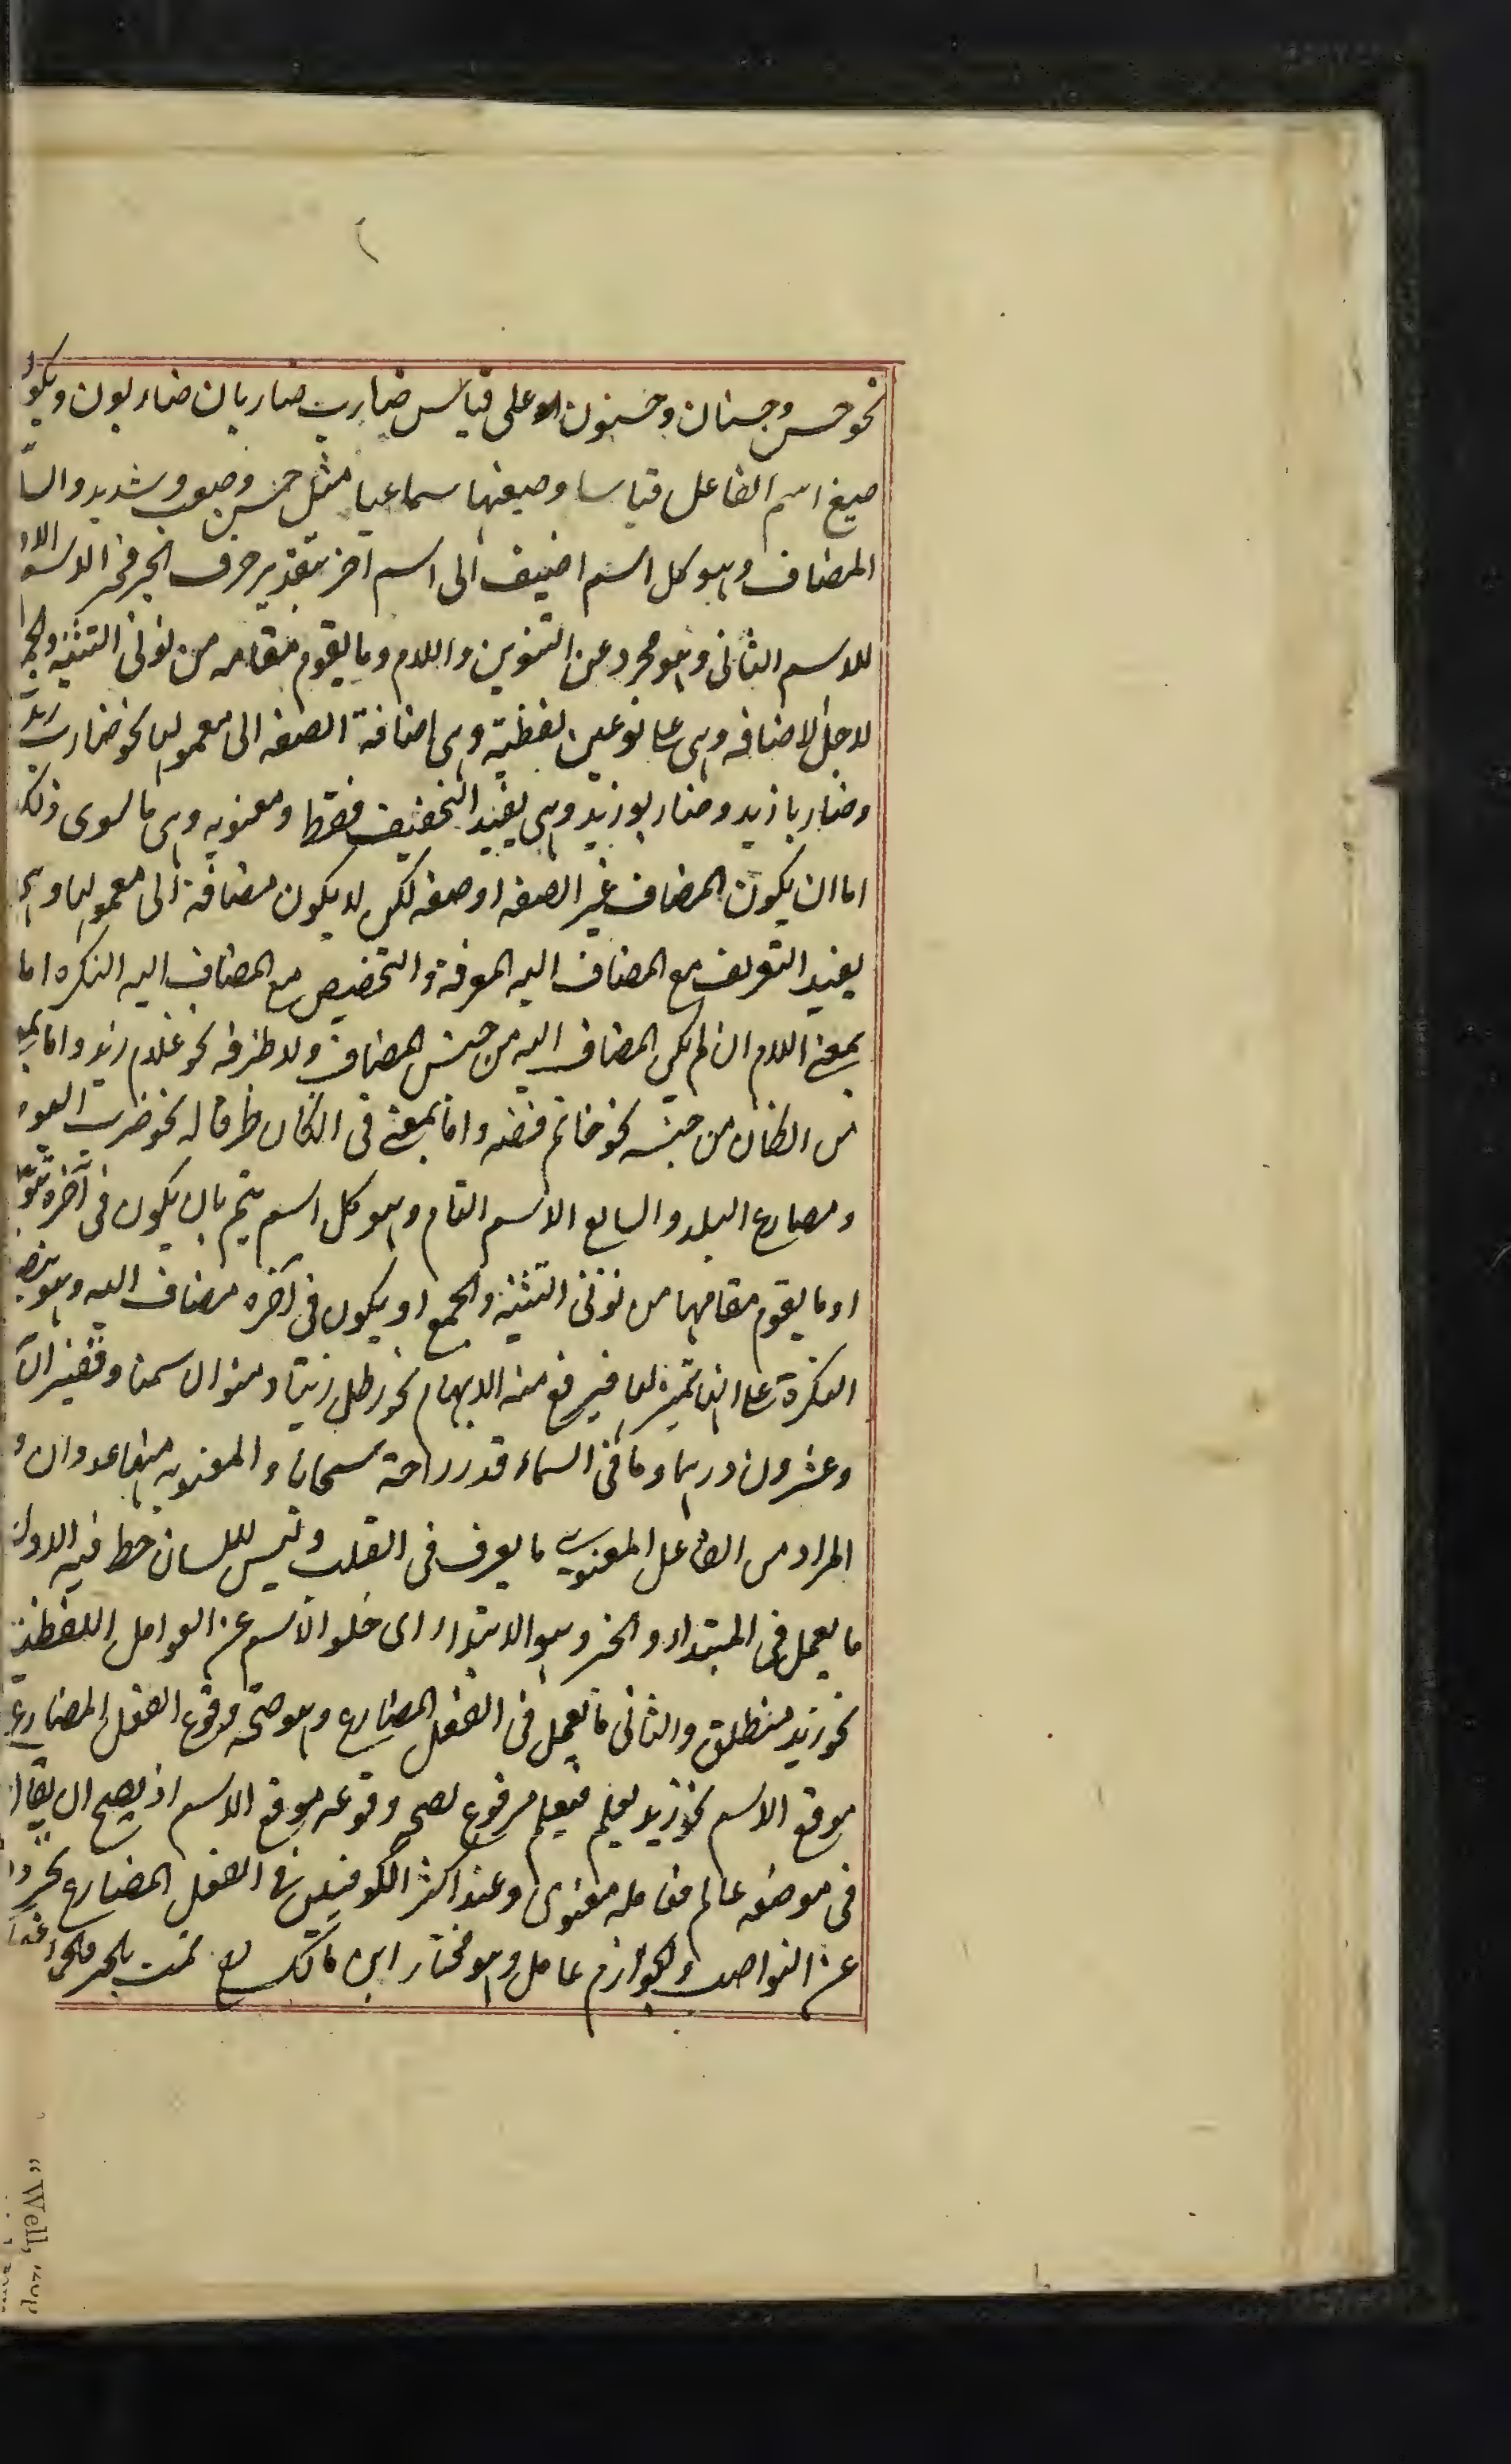 نحو حسن وحسنان وحسنون على قياس ضارب ضاربان ضاربون ويكون
صيغ اسم الفاعل قياسا وصيغتها سماعيا مثل حسن وصعب وشديد والسا
المضاف وهو كل اسم اضيف الى اسم اخر بتقدير حرف الجر فجر الاسم الاول
للاسم الثانى وهو مجرد عن التنوين واللام وما يقوم مقامه من نونى التثنيه والجمع
لاجل الاضافه وهى على نوعين لفظية وهى اضافة الصفه الى معمولها نحو ضارب زيد
وضاربا زيد وضاربو زيد وهى يفيد التخفيف فقط ومعنويه وهى ما سوى ذلك
اما ان يكون المضاف غير الصفه او صفه لكن لا يكون مضافة الى معمولها وهى
يفيد التعريف مع المضاف اليه المعرفة والتخصيص مع المضاف اليه النكره اما
بمعنى اللام ان لم يكن المضاف اليه من جنس المضاف ولا ظرفه نحو غلام زيد واما بمعنى
من ان كان من جنسه نحو خاتم فضه واما بمعنى فى ان كان ظرفا له نحو ضرب اليوم
ومصارع البلد والسابع الاسم التام وهو كل اسم يتم بان يكون فى آخره تنوين
او ما يقوم مقامها من نونى التثنيه والجمع او يكون فى آخره مضاف اليه وهو ينصب
النكرة على انها تميز لها فيرفع منه الابهام نحو رطل زيتا ومنوان سمنا وقفيزان
وعشرون درهما وما فى السماء قدر راحة سحابا والمعنويه منها عددان و
المراد من العامل المعنوى ما يعرف فى القلب وليس للسان حظ فيه الاول
ما يعمل فى المبتداء والخبر وهو الابتداء اى خلو الاسم عن العوامل اللفظية
نحو زيد منطلق والثانى ما يعمل فى الفعل المضارع وهو صحة وقوع الفعل المضارع
موقع الاسم نحو زيد يعلم فيعلم مرفوع لصحه وقوعه موقع الاسم اذ يصح ان يقال
فى موضعه عالم فعامله معنوى وعند اكثر الكوفيين فى الفعل المضارع تجرده
عن النواصب والجوازم عامل وهو مختار ابن مالك تمت بالخير
"Well,